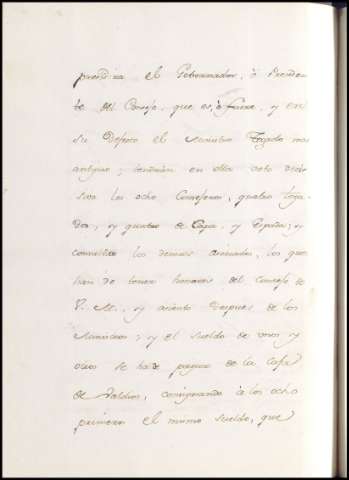 presidira el Governador, ò Preside
te del Consejo, que es, ò fuere, y en
su defecto el Ministro Togado mas
antiguo; tendran en ella voto deci
sivo los ocho Consejeros, quatro Toga
dos, y quatro de Capa, y Espada; y
consultivo los demas asociados, los que
han de tener honores del Consejo de
V. M., y asiento despues de los
Ministros; y el sueldo de unos y
otros se ha de pagar de la Casa
de Valdios, consignando à los ocho
primeros el mismo sueldo, que